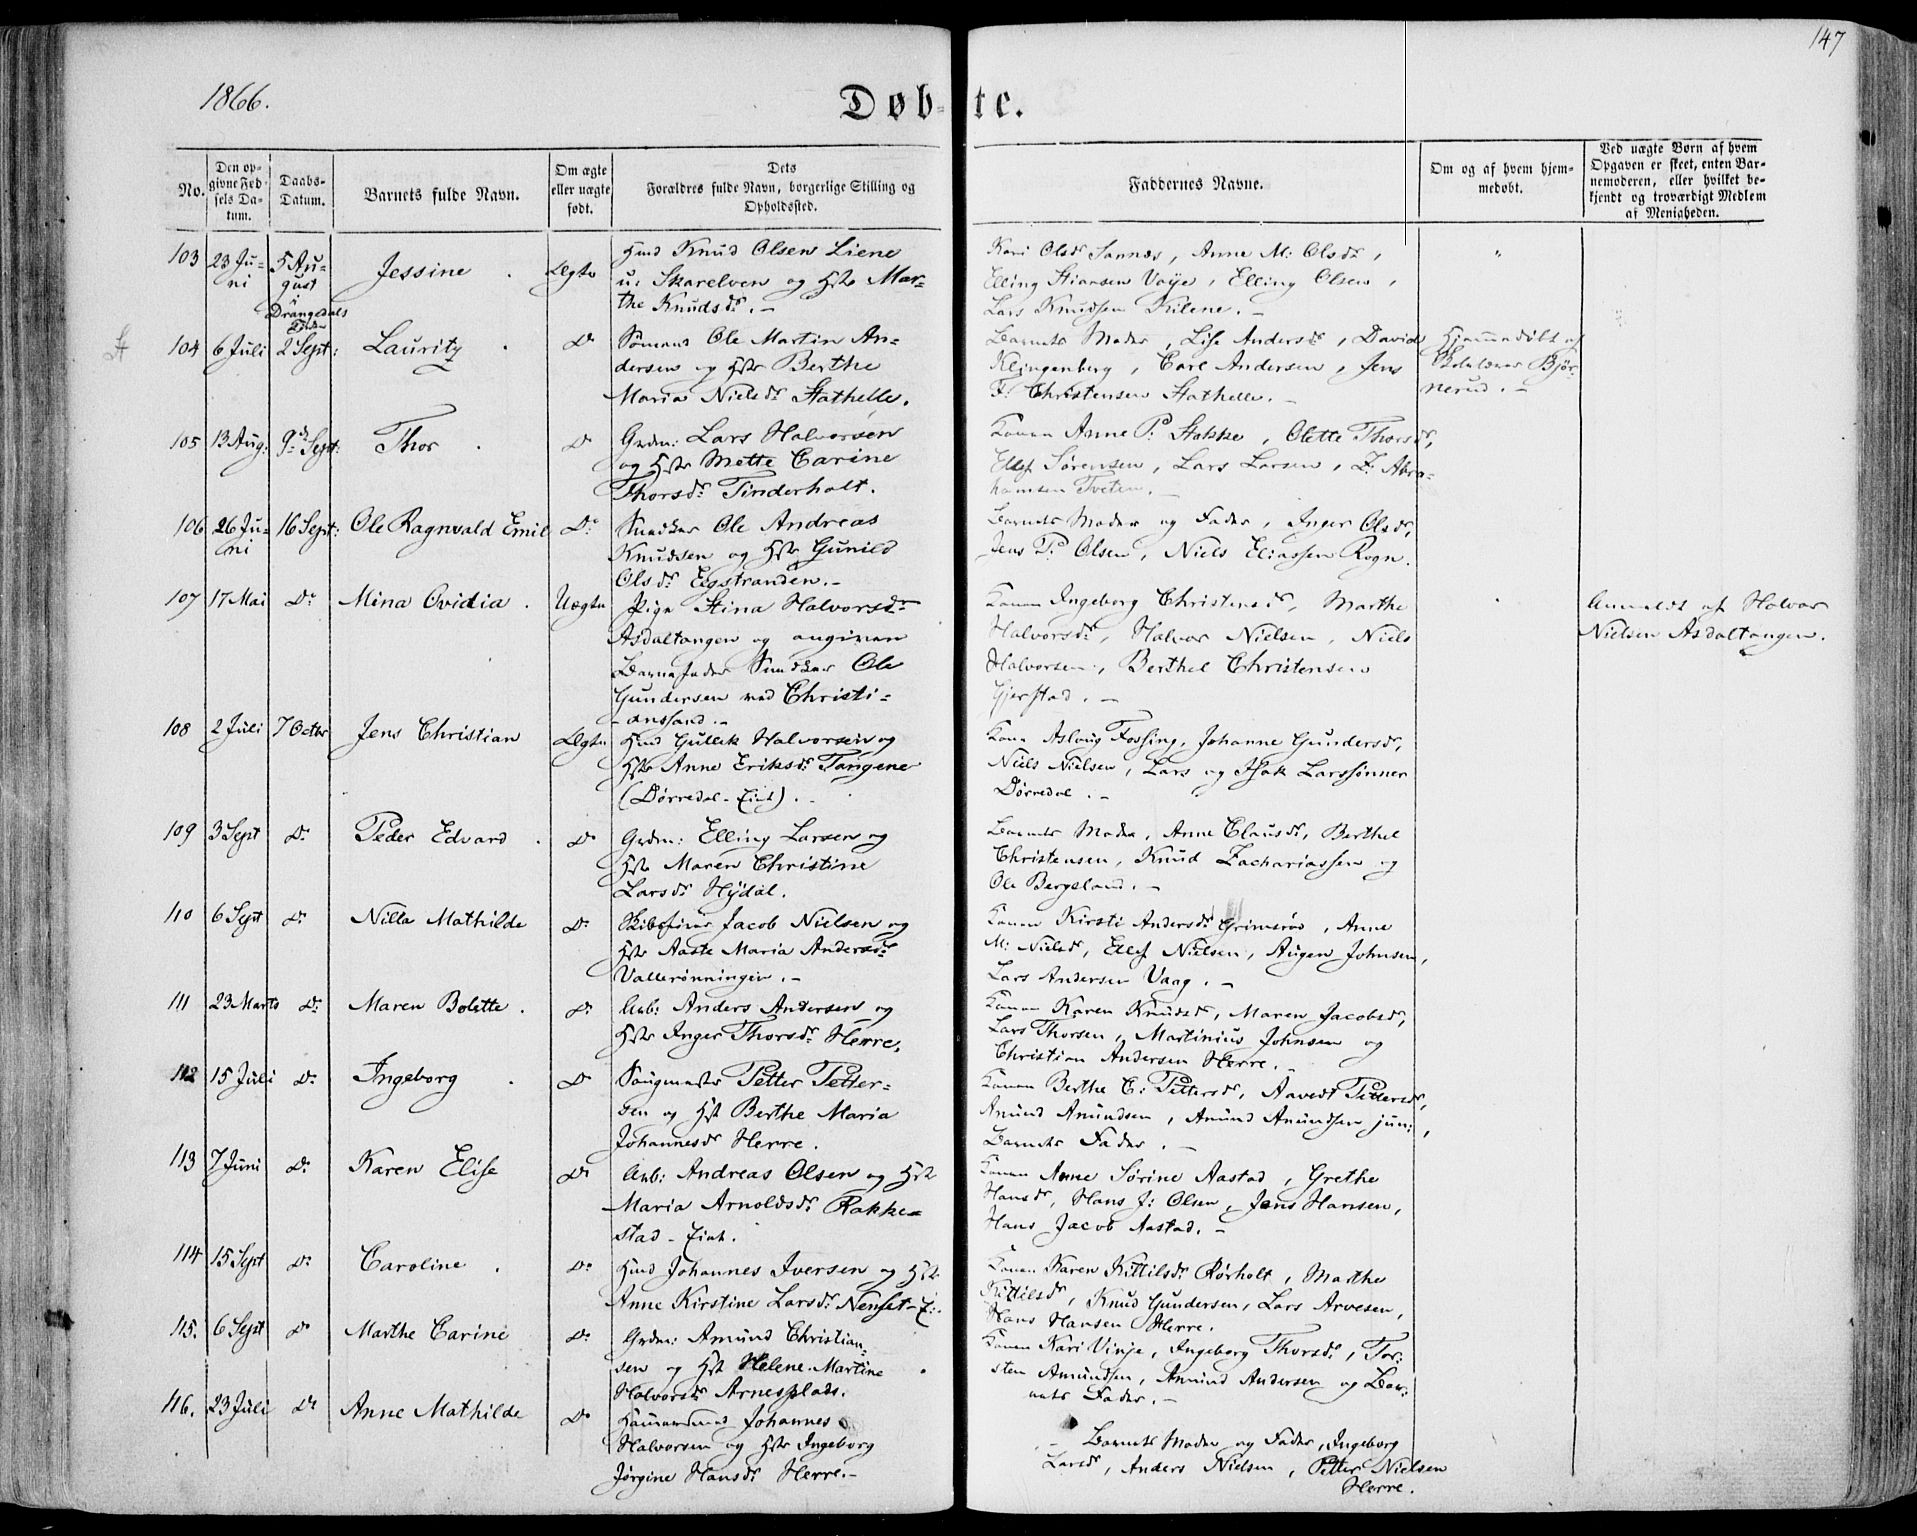 147
1866.
Døb- te.
No.
Den op-
givne Fød-
sels Da-
tum.
Daabs-
Datum.
Barnets fulde Navn.
Om ægte
eller uægte
født.
Dets
Forældres fulde Navn, borgerlige Stilling og
Opholdssted.
Faddernes Navne.
Om og af hvem hjem-
medøbt.
Ved uægte Børn af hvem
Opgaven er skeet, enten Bar-
nemoderen, eller hvilket be-
kjendt og troværdigt Medlem
af Menigheden.
103 23 Ju-
ni
5 Au-
gust
i
Drangedals
Jessine . Ægte
Hmd Knud Olsen Liene
u: Skarelven og Hst Mar-
the Knudsdr. -
Kari Olsdr Sannes, Anne M: Olsdr,
Elling Stiansen Voje, Elling Olsen,
Lars Knudsen Kilene. -
"
104 6 Juli 2 Sept: Lauritz . Do
Sømand Ole Martin An-
dersen og Hst Berthe
Maria Nielsdr Stathelle.
Barnets Moder, Lise Andersdr, David
Klingenberg, Carl Andersen, Jens
F. Christensen Stathelle. -
Hjemmedøbt af
Skolelærer Bjør-
nerud. -
105 13 Aug: 9de Sept: Thor . Do
Grdm: Lars Halvorsen
og Hst Mette Carine
Thorsdr. Tinderholt.
Konen Anne P: Stokke, Olette Thorsdr,
Ellef Sørensen, Lars Larsen, Z: Abra-
hamsen Tveten. -
106 26 Ju-
ni
16 Sept: Ole Ragnvald Emil Do
Snedker Ole Andreas
Knudsen og Hst Gunild
Olsdr. Eegstranden. -
Barnets Moder og Fader, Inger Olsdr,
Jens P. Olsen, Niels Eliassen Rogn.
107 17 Mai Do Mina Ovidia . Uægte
Pige Stina Halvorsdr
Asdaltangen og angiven
Barnefader Snedker Ole
Gundersen ved Christi-
- anssand. -
Konen Ingeborg Christensdr, Marthe
Halvorsdr, Halvor Nielsen, Niels
Halvorsen, Berthel Christensen
Gjerstad. -
Anmeldt af Halvor
Nielsen Asdaltangen.
108 2 Juli 7 Octbr Jens Christian Ægte
Hmd Gullek Halvorsen og
Hst Anne Eriksdr. Tangene
(Dørredal - Eiet). -
Kone Aslaug Fossing, Johanne Gundersdr,
Niels Nielsen, Lars og Isak Larssønner
Dørredal. -
109 3 Sept Do Peder Edvard . Do
Grdm: Elling Larsen og
Hst Maren Christine
Larsdr Nydal.
Barnets Moder, Anne Clausdr, Berthel
Christensen, Knud Zachariassen og
Ole Bergsland. -
110 6 Sept Do Nilla Mathilde Do
Skibsfører Jacob Nielsen og
Hst Aaste Maria Andersdr
Vallerønningen. -
Konen Kirsti Andersdr Grimsrød, Anne
M: Nielsdr, Ellef Nielsen, Augen Johnsen,
Lars Andersen Vaag. -
111 23 Marts Do Maren Bolette . Do
Arb: Anders Andersen og
Hst Inger Thorsdr. Herre.
Konen Karen Knudsdr, Maren Jacobsdr,
Lars Thorsen, Martinius Johnsen og
Christian Andersen Herre. -
112 15 Juli Do Ingeborg . Do
Saugmester Petter Petter-
sen og Hst Berthe Maria
Johannesdr Herre.
Konen Berthe C: Pettersdr, Aavedt Pettersdr,
Amund Amundsen, Amund Amundsen jun:,
Barnets Fader. -
113 7 Juni Do Karen Elise Do
Arb: Andreas Olsen og Hst
Maria Arnoldsdr. Rakke-
stad - Eiet.
Konen Anne Sørine Aastad, Grethe
Hansdr, Hans J: Olsen, Jens Hansen,
Hans Jacob Aastad. -
114 15 Sept Do Caroline . Do
Hmd Johannes Iversen og Hst
Anne Kirstine Larsdr. Nenset - E:.
Konen Karen Kittilsdr. Rørholt, Marthe
Kittilsdr, Knud Gundersen, Lars Arvesen,
Hans Hansen Herre.
115. 6 Sept Do Marthe Carine Do
Grdm: Amund Christian-
sen og Hst Helene Martine
Halvorsdr Arnesplads.
Konen Kari Vinje, Ingeborg Thorsdr, Tor-
sten Amundsen, Amund Andersen og Bar-
nets Fader. -
116. 23 Juli Do Anne Mathilde Do
Johannes
Halvorsen og Hst Ingeborg
Jørgine Hansdr Herre. -
- Barnets Moder og Fader, Ingeborg
Larsdr, Anders Nielsen, Petter Nielsen
Herre.